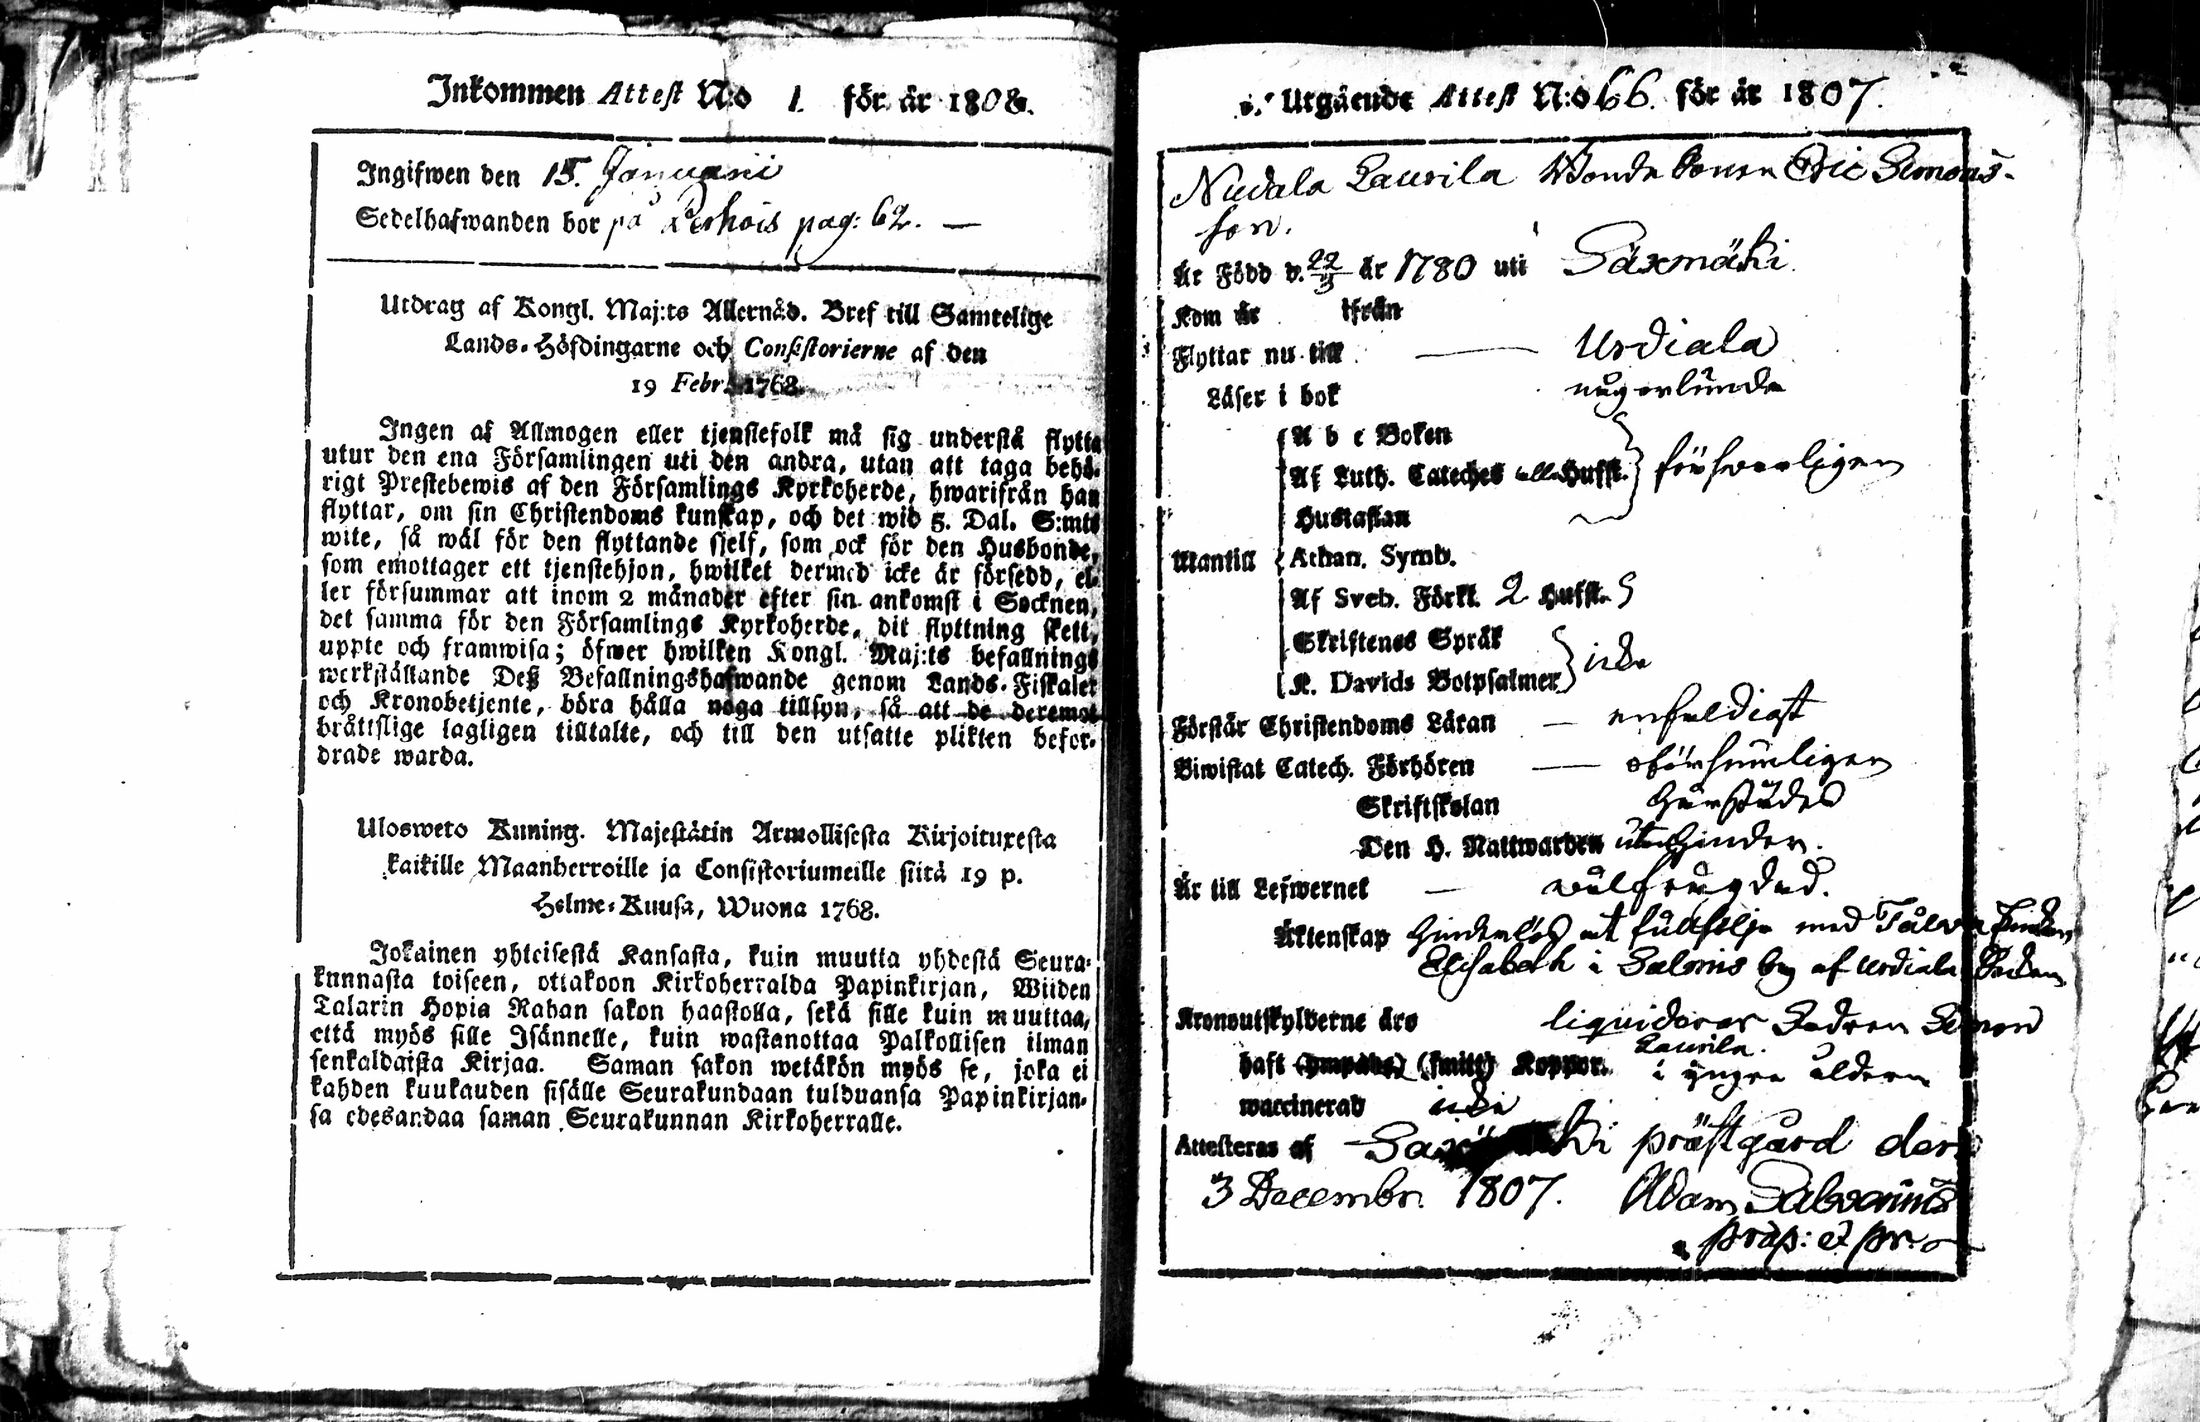 Inkommen Attest No 1. för år 1808.
Ingifwen den 15. Januarii
Sedelhafwanden bor på Perhois pag: 62. —
Utdrag af Kongl. Maj:ts Allernåd. Bref till Samtelige
Lands-Höfdingarne och Consistorierne af den
19 Febr. 1768.
Ingen af Allmogen eller tjenstefolk må sig understå flytta
utur den ena Församlingen uti den andra, utan att taga behö-
rigt Prestebewis af den Församlings Kyrkoherde, hwarifrån han
flyttar, om sin Christendoms kunskap, och det wid 5. Dal. S:mts
wite, så wäl för den flyttande sjelf, som ock för den Husbonde,
som emottager ett tjenstehjon, hwilket dermed icke är försedd, el-
ler försummar att inom 2 månader efter sin ankomst i Socknen,
det samma för den Församlings Kyrkoherde, dit flyttning skett,
uppte och framwisa; öfwer hwilken Kongl. Maj:ts befallnings
werkställande Deß Befallningshafwande genom Lands-Fiskaler
och Kronobetjente, böra hålla noga tillsyn, så att de deremot
bråttslige lagligen tilltalte, och till den utsatte plikten befor-
drade warda.
Ulosweto Kuning. Majestätin Armollisesta Kirjoituxesta
kaikille Maanherroille ja Consistoriumeille siitä 19 p.
Helme-Kuusa, Wuona 1768.
Jokainen yhteisestä Kansasta, kuin muutta yhdestä Seura-
kunnasta toiseen, ottakoon Kirkoherralda Papinkirjan, Wiiden
Talarin Hopia Rahan sakon haastolla, sekä sille kuin muuttaa,
että myös sille Isännelle, kuin wastanottaa Palkollisen ilman
senkaldaista Kirjaa. Saman sakon wetäkön myös se, joka ei
kahden kuukauden sisälle Seurakundaan tulduansa Papinkirjan-
sa edesandaa saman Seurakunnan Kirkoherralle.
Utgående Attest N:o 66. för år 1807.
Nudala Laurila Bonden Eric Simons-
son.
Är Född d. 22/3 år 1780 uti Säxmäki.
Kom år ifrån
Flyttar nu till — Urdiala
Läser i bok någorlunda
A b c Boken
Af Luth. Cateches alla Hufst. försvarligen
Hustaflan
Utantill Athan. Symb.
Af Sveb. Förkl. 2 Hufst. 5
Skriftenes Språk
K. Davids Botpsalmer icke
Förstår Christendoms Läran — enfaldigt
Biwistat Catech. Förhören — oförsumligen
Skriftskolan
Den H. Nattwarden utan hinder.
Är till Lefwernet — wälfrägdad.
Äktenskap hinderlös at fullfölja med
Elisabeth i Salmis by af Urdiala Socken
Kronoutskylderne äro liquiderar Fadren Simon
Laurila.
haft (ympade) (smitt) Koppor. i yngre åldern
waccinerad icke
Attesteras af Saxmäki prästgård den
3 Decembr. 1807. Adam Salvenius
prap: et pr.